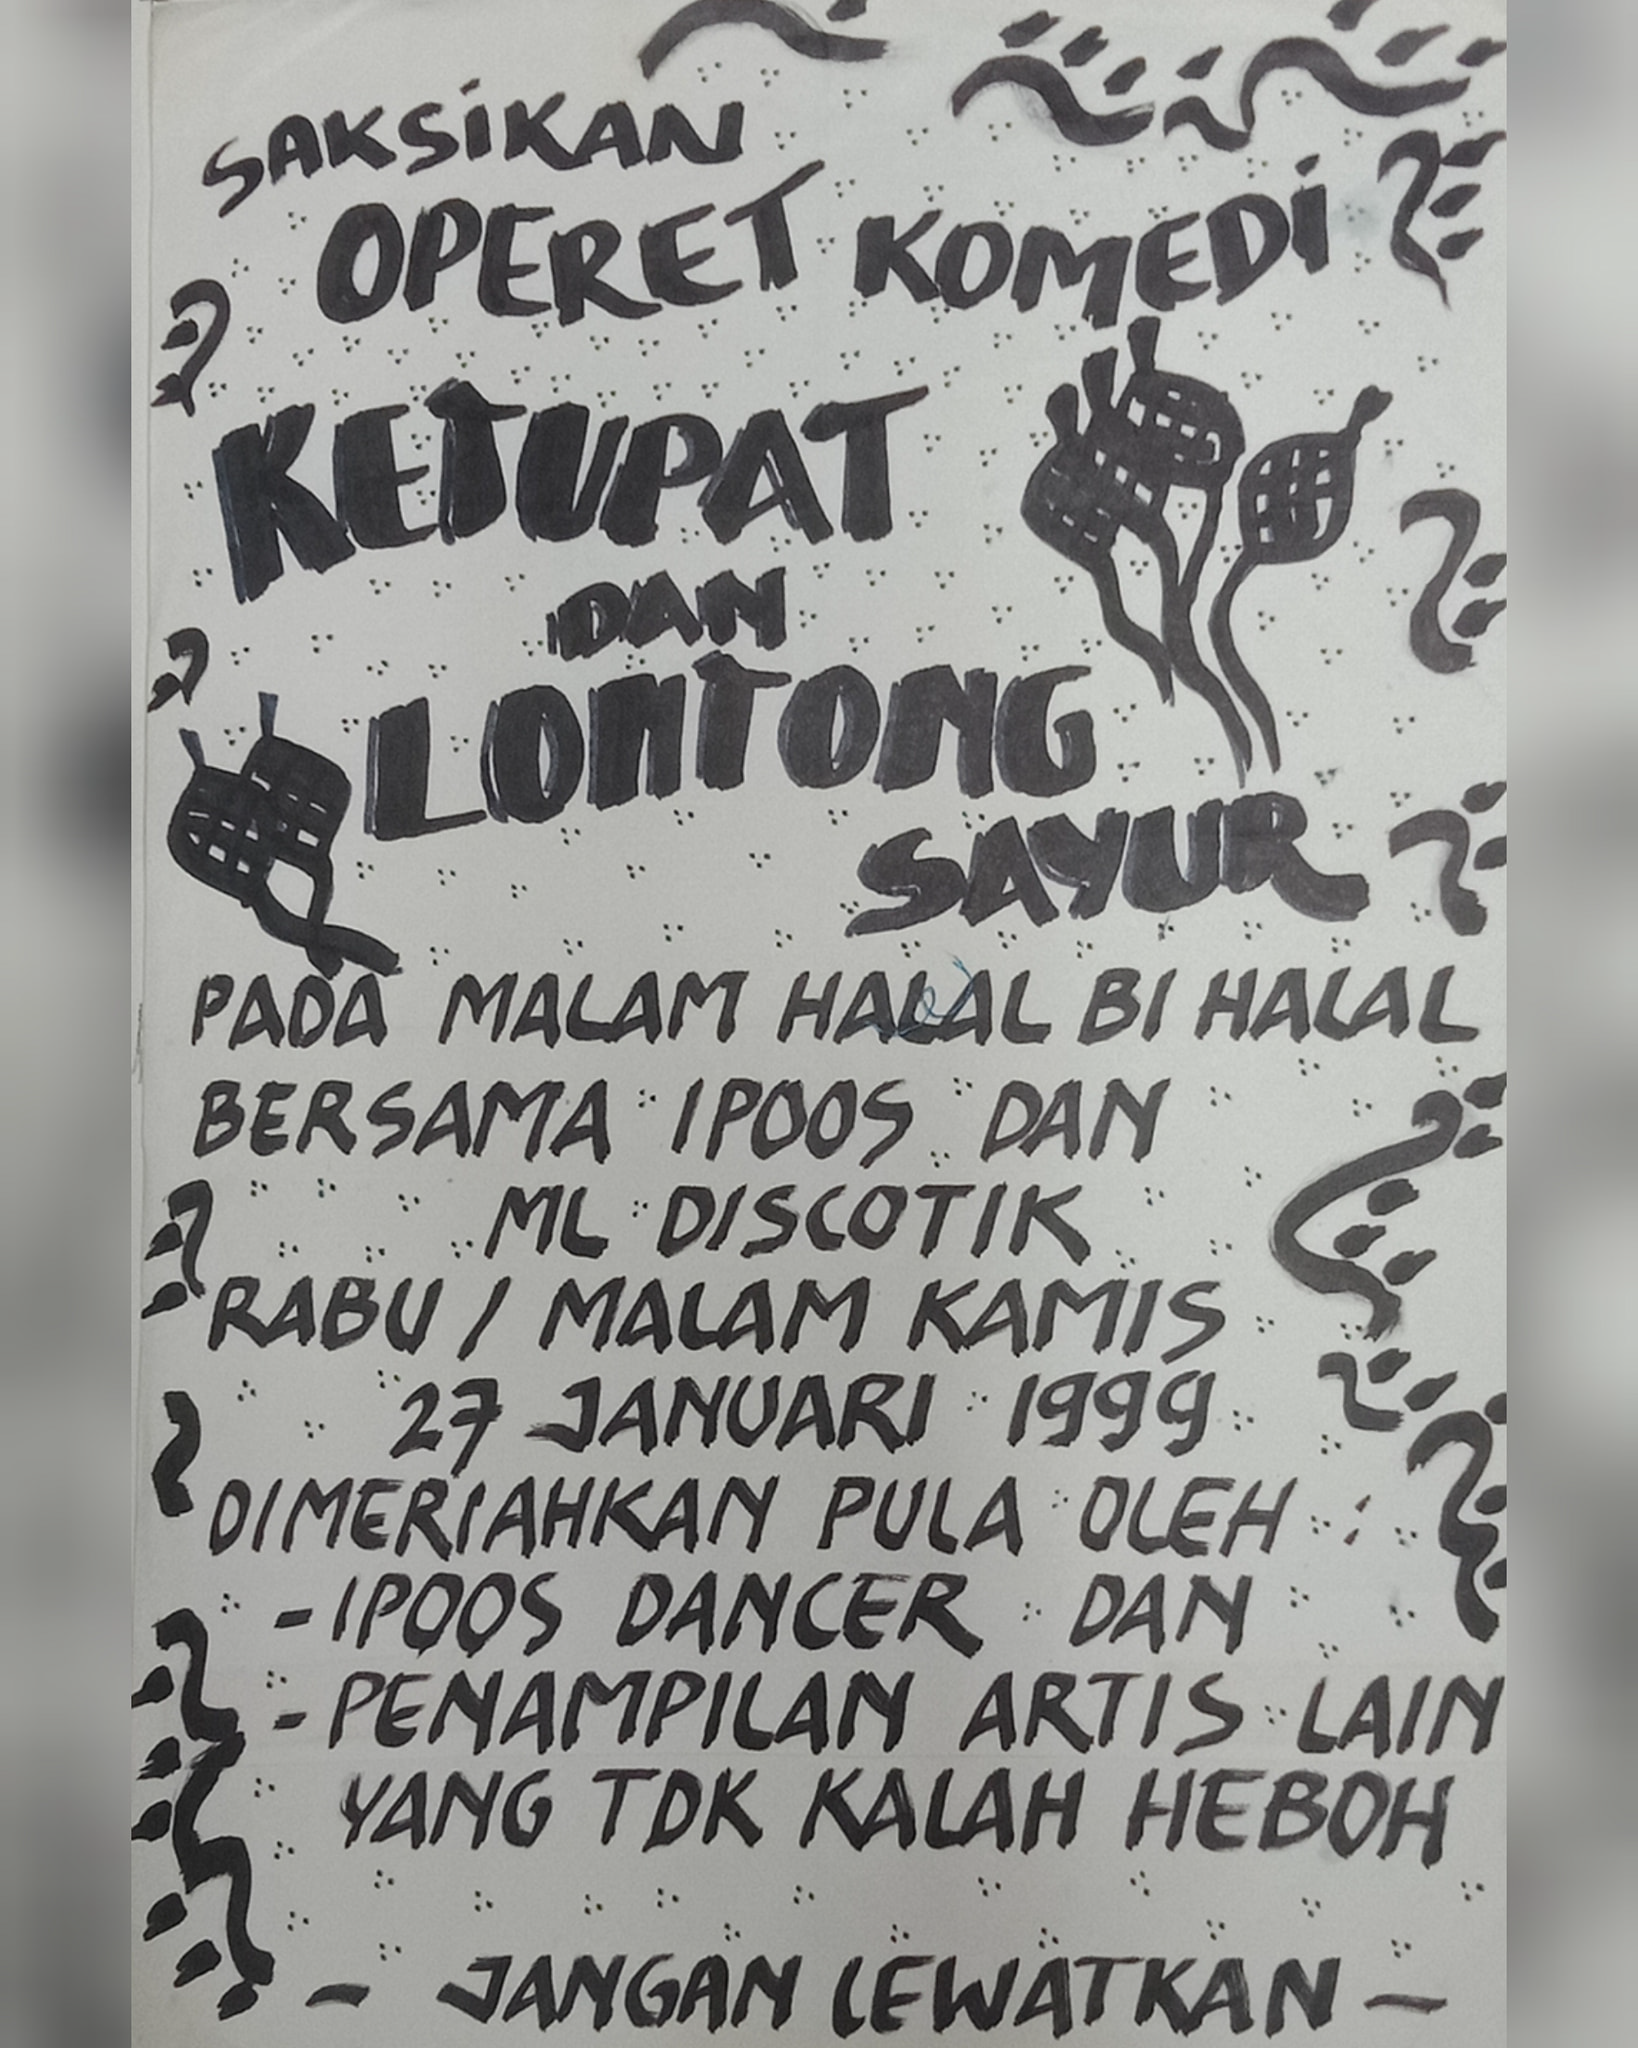 SAKSIKAN
OPERET KOMEDI
KETUPAT
DAN
LONTONG
SAYUR
PADA MALAM HALAL BI HALAL
BERSAMA IPOOS DAN
ML DISCOTIK
RABU / MALAM KAMIS
27 JANUARI 1999
DIMERIAHKAN PULA OLEH :
- IPOOS DANCER DAN
- PENAMPILAN ARTIS LAIN
YANG TDK KALAH HEBOH
- JANGAN LEWATKAN -